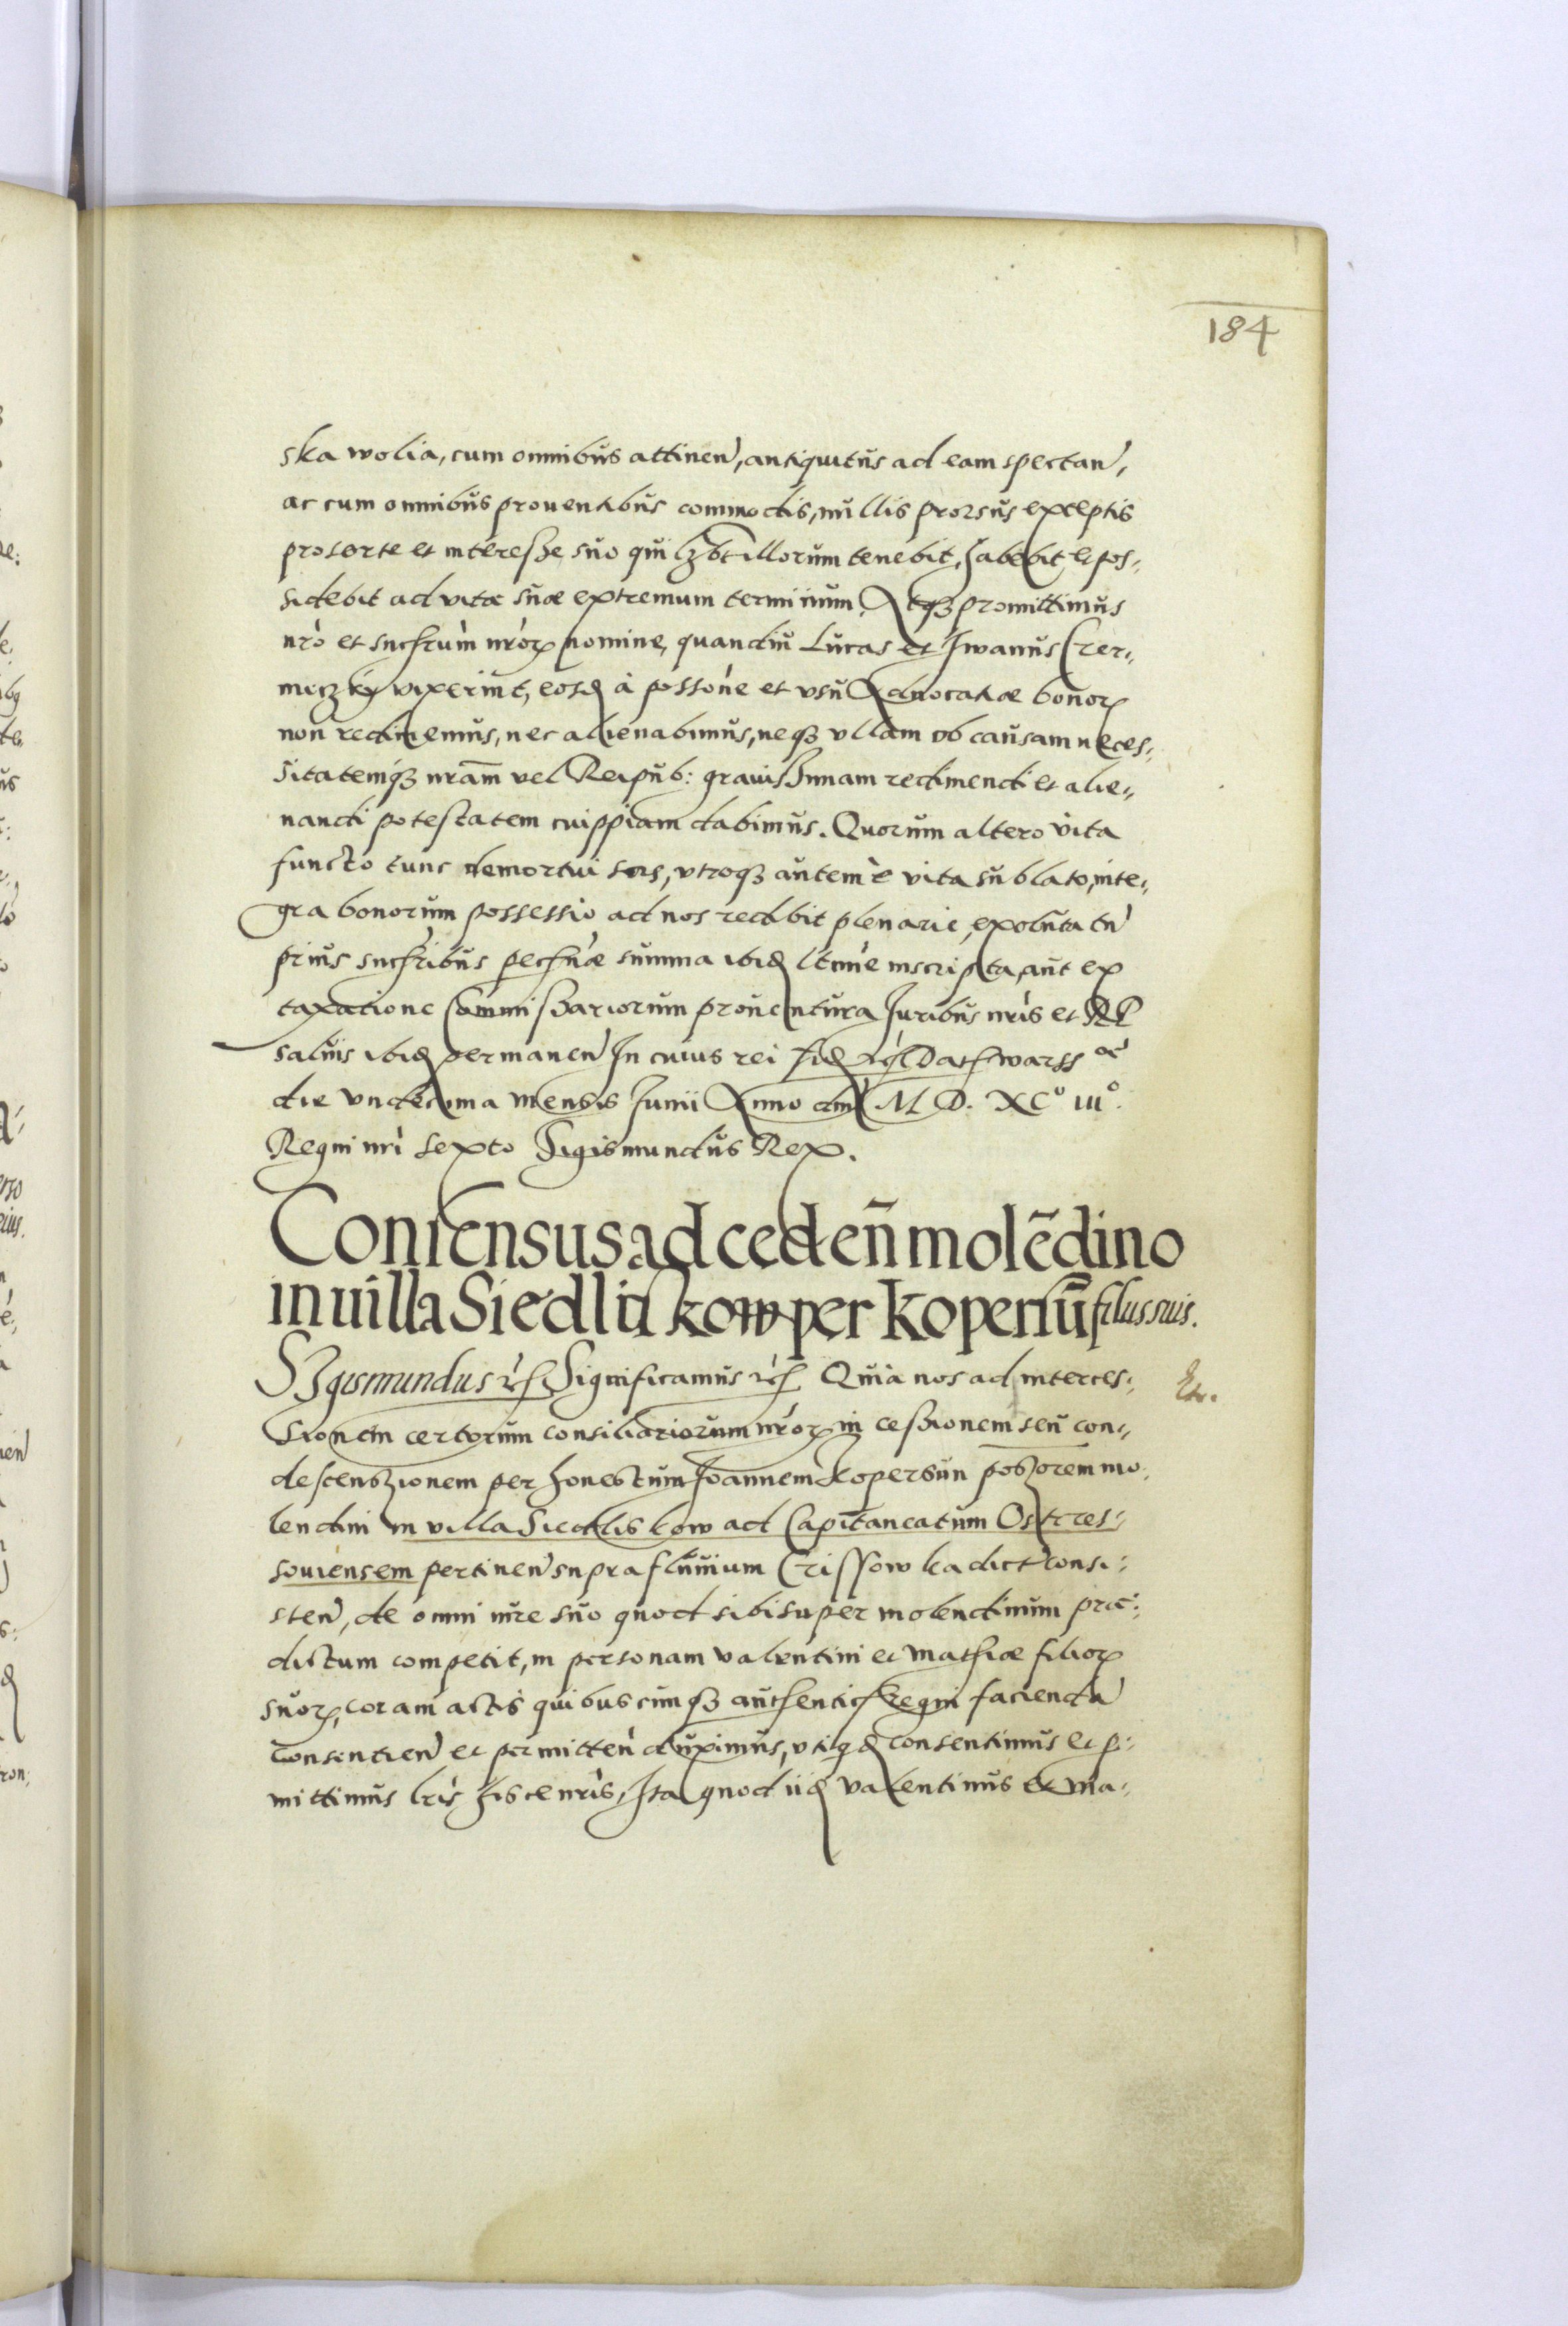 184
ska wolia, cum omnibus attinen, antiquitus ad eam spectan,
ac cum omnibus prouentibus commodis, nullis prorsus exceptis
pro sorte et interesse suo quilzbt illorum tenebit, habebit, et pos:
sidebit ad vitæ suæ extremum terminum. Atqz promittimus
nrò et succrum nròrꝝ nomine, quandiu Lucas et Iwanus Czer:
miczky vixerint, eosd à possone et vsu Aduocatiæ bonorꝝ
non redimemus, nec alienabimus, neqz vllam ob causam neces:
sitatemqz nram vel Reipub: grauissimam redimendi et alie:
nandi potestatem cuippiam dabimus. Quorum altero vita
functo tunc demortui sors, vtroqz autem è vita sublato, inte:
gra bonorum possessio ad nos redibit plenarie, exoluta tn
prius succribus pecunæ summa ibid ltime inscripta, aut ex
taxatione Commissariorum prouentura Iuribus nris et RP
saluis ibid permanen In cuius rei fid rc Dat warss æ
die vndecima mensis Iunii Anno dni M D. XC° iii°.
Regni nri sexto Sigismundus Rex.
Consensus ad ceden molēdino
in uilla Siedliskow per Kopersū filiis suis.
Sigismundus rc Significamus rc Quia nos ad interces:
Etr.
sionem certorum consiliariorum nròrꝝ in cessionem seu con:
descenszionem per honestum Ioannem Kopersun posszorem mo:
lendini in villa Siedliskow ad Capitaneatum Ostrces:
souiensem pertinen supra fluuium Crissowka dict consi:
sten, de omni iure suo quod sibi super molendinum præ:
dictum competit, in personam valentini et mathiæ filiorꝝ
suorꝝ, coram actis quibuscunqz authentic Regni faciendà
consentien et permitten duximus, vtiqd consentimus et p:
mittimus lris hisce nris, Ita quod iid valentinus et ma: